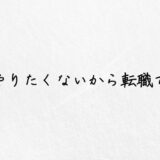 やりたくないから転職で